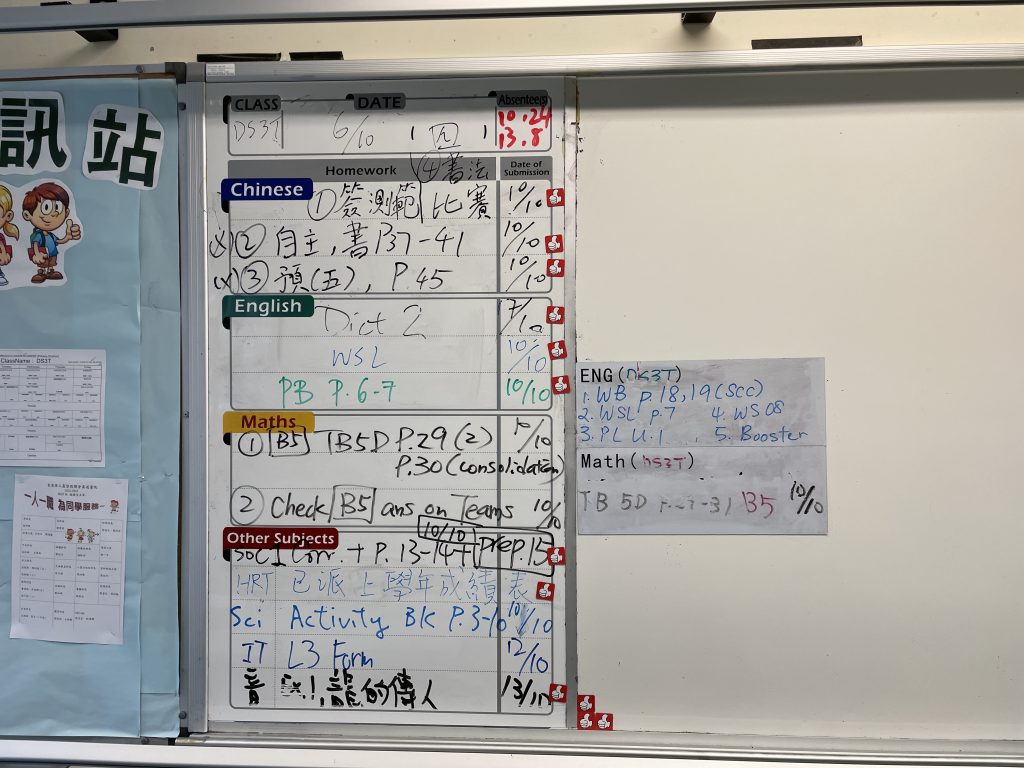 訊
站
CLASS DATE Absentee(s)
DS3T 6/10 10.24
13.8
Homework Date of Submission
④書法
Chinese ①簽測範 比賽 10/10
②自主,書P37-41 10/10
③預(五), P.45 10/10
English Dict 2
WSL 10/10
PB P.6-7 10/10
Maths
① B5 TB5D P.29(2)
P.30(consolidation)
② Check B5 ans on Teams 10/10
Other Subjects 10/10
Corr. + P. 13-14 + prep.15
HRT 已派上學年成績表
Sci Activity BK P.3-10 10/10
IT L3 Form 12/10
音 龍的傳人
ENG(DS3T)
1.WB p.18,19(SCC)
2.WSL p.7 4. WS 08
3.PL U.1 5. Booster
Math(DS3T)
TB 5D B5 10/10
ClassName : DS3T
一人一職 為同學服務